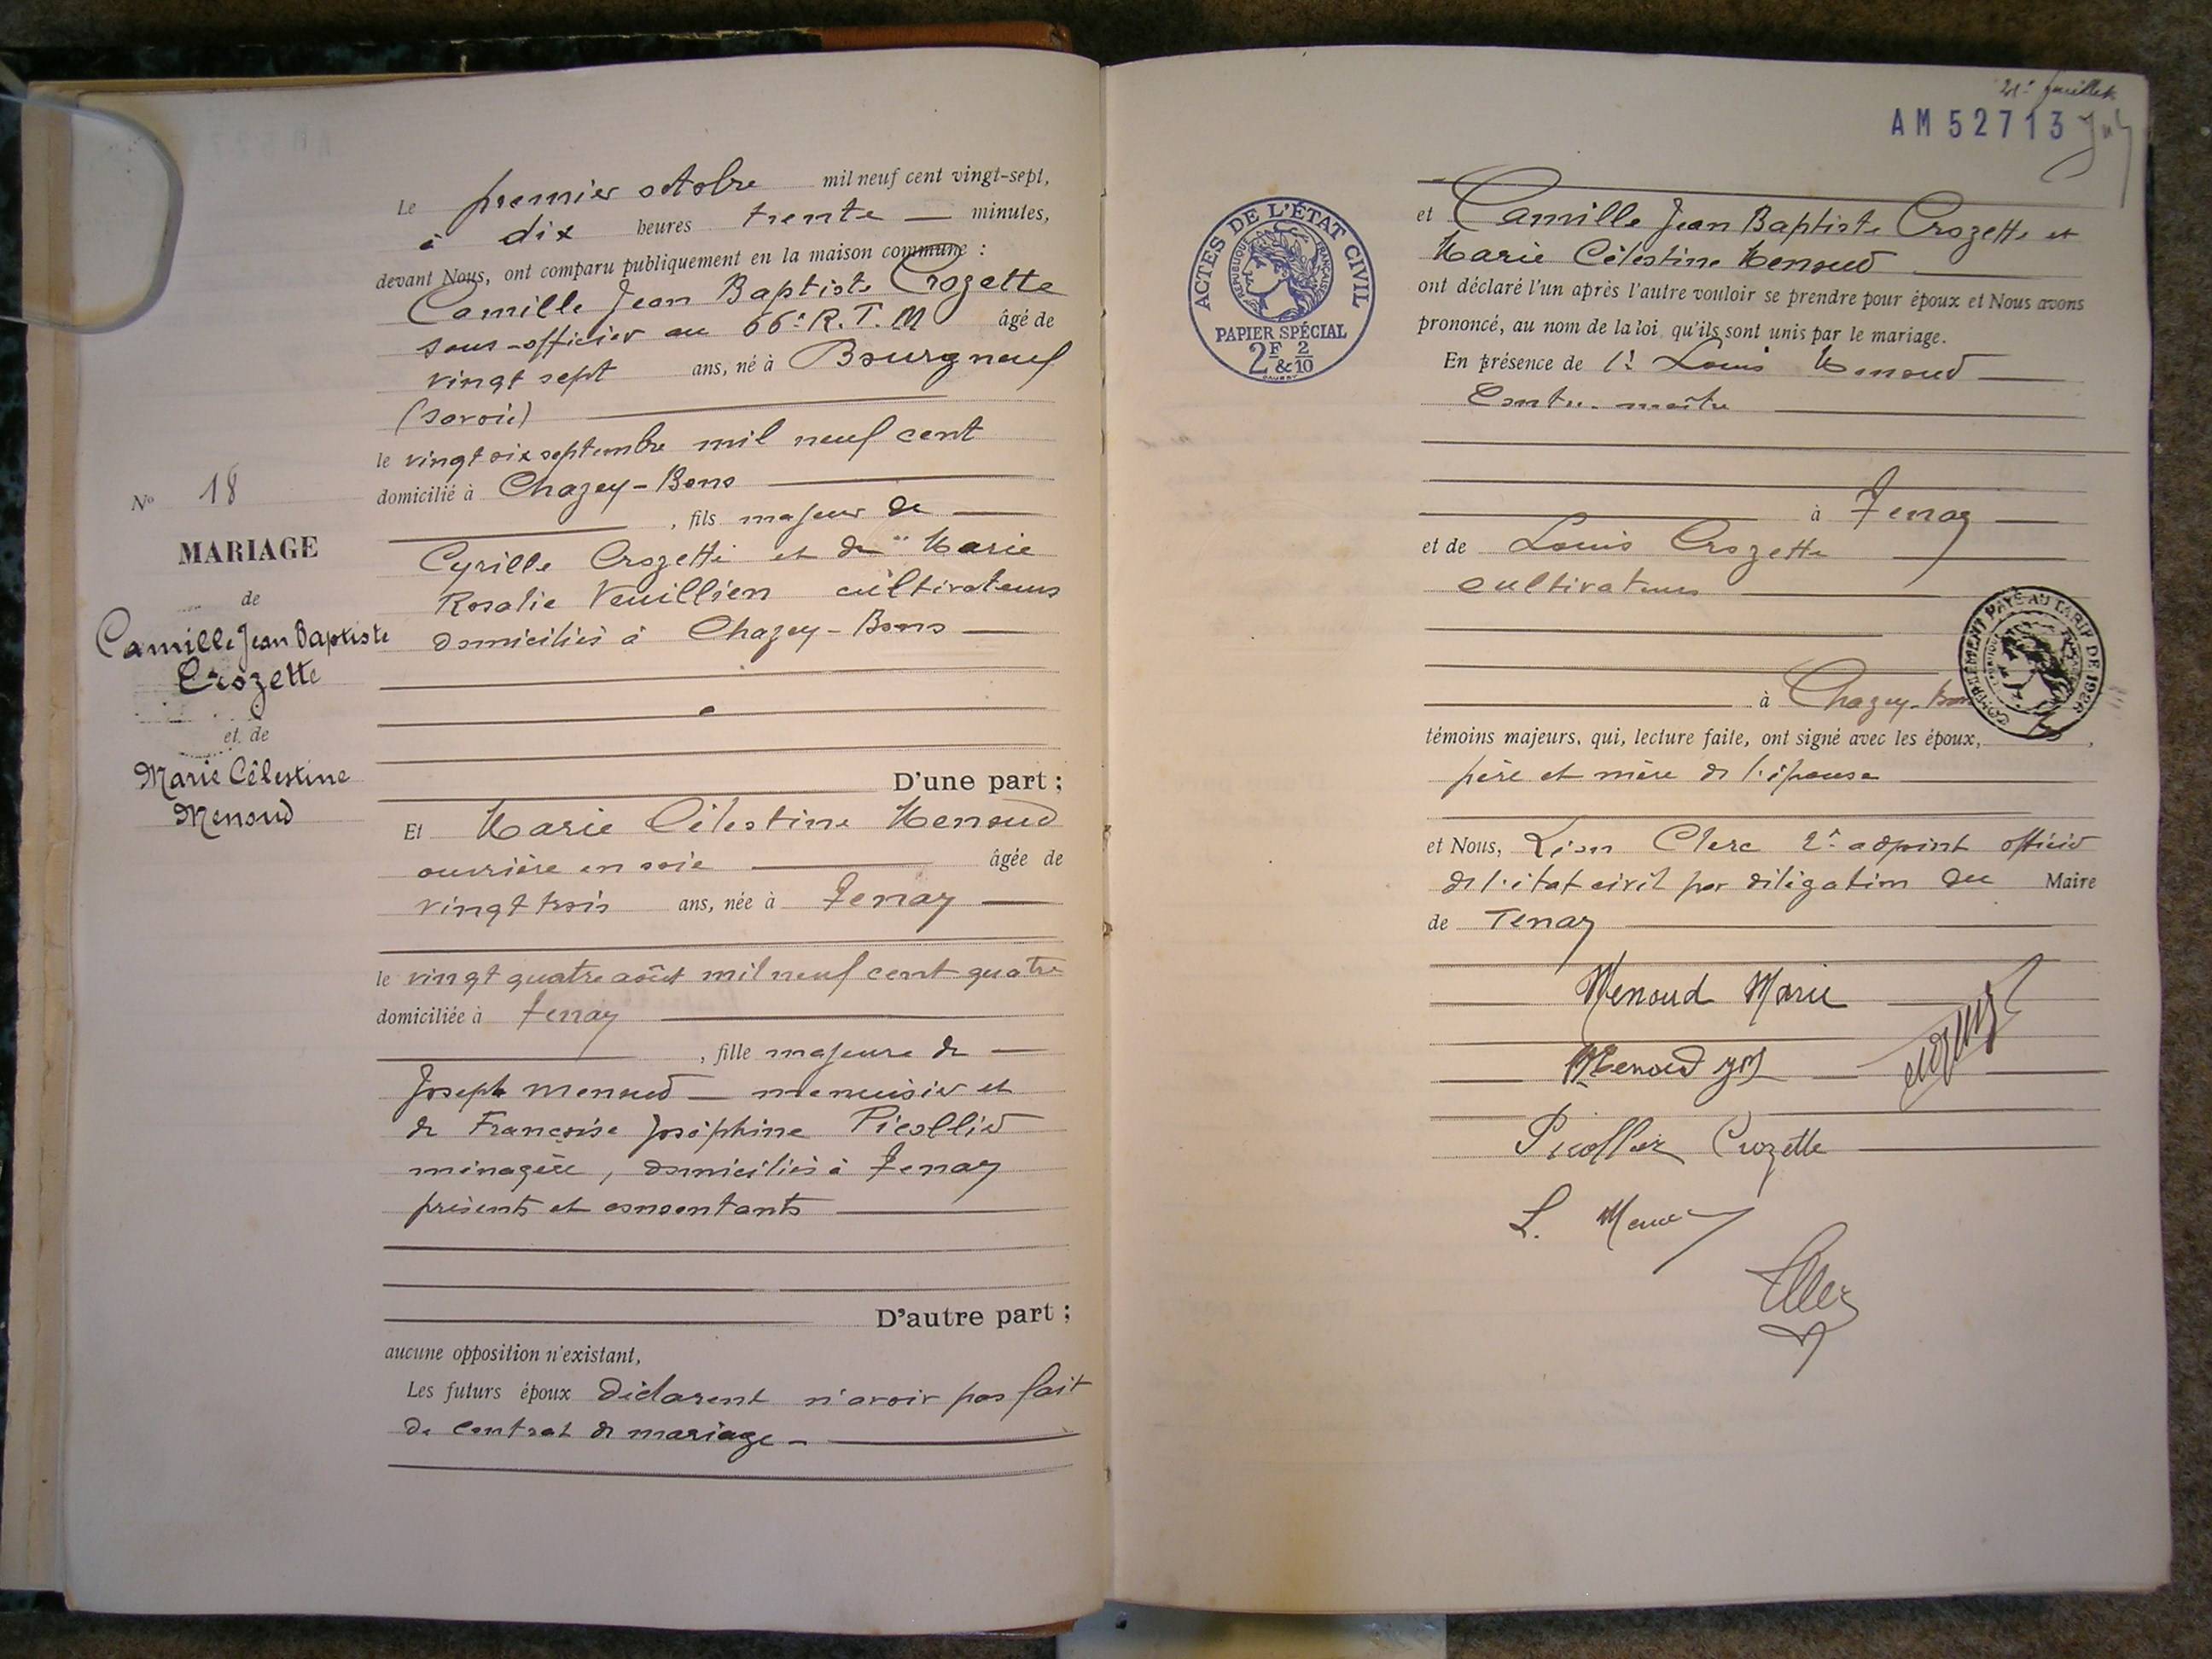 Le premier octobre mil neuf cent vingt-sept,
à dix heures trente — minutes,
devant Nous, ont comparu publiquement en la maison commune :
Camille Jean Baptiste Crozette
sous-officier au 66e R.T.M âgé de
vingt sept ans, né à Bourgneuf
(Savoie)
le vingt six septembre mil neuf cent
domicilié à Chazey-Bons
, fils majeur de
Cyrille Crozette et de Marie
Rosalie Veuillien cultivateurs
domiciliés à Chazey-Bons
D'une part ;
Et Marie Célestine Menoud
ouvrière en soie âgée de
vingt trois ans, née à Tenay
le vingt quatre août mil neuf cent quatre
domiciliée à Tenay
, fille majeure de
Joseph Menoud menuisier et
de Françoise Joséphine Picollier
ménagère, domiciliés à Tenay
présents et consentants
D'autre part ;
aucune opposition n'existant,
Les futurs époux déclarent n'avoir pas fait
de contrat de mariage
No 18
MARIAGE
de
Camille Jean Baptiste
Crozette
et de
Marie Célestine
Menoud
21e feuillet
AM 52713
ACTES DE L'ÉTAT CIVIL
RÉPUBLIQUE FRANÇAISE
PAPIER SPÉCIAL
2F & 2/10
et Camille Jean Baptiste Crozette et
Marie Célestine Menoud
ont déclaré l'un après l'autre vouloir se prendre pour époux et Nous avons
prononcé, au nom de la loi qu'ils sont unis par le mariage.
En présence de 1° Louis Menoud
Contre-maître
à Tenay
et de Louis Crozette
cultivateur
à Chazey-Bons
COMPLÉMENT PAYÉ AU TARIF DE
témoins majeurs, qui, lecture faite, ont signé avec les époux,
père et mère de l'épouse
et Nous, Léon Clerc 2e adjoint officier
de l'état civil par délégation du Maire
de Tenay
Menoud Marie
Menoud
Picollier Crozette
L. Menoud